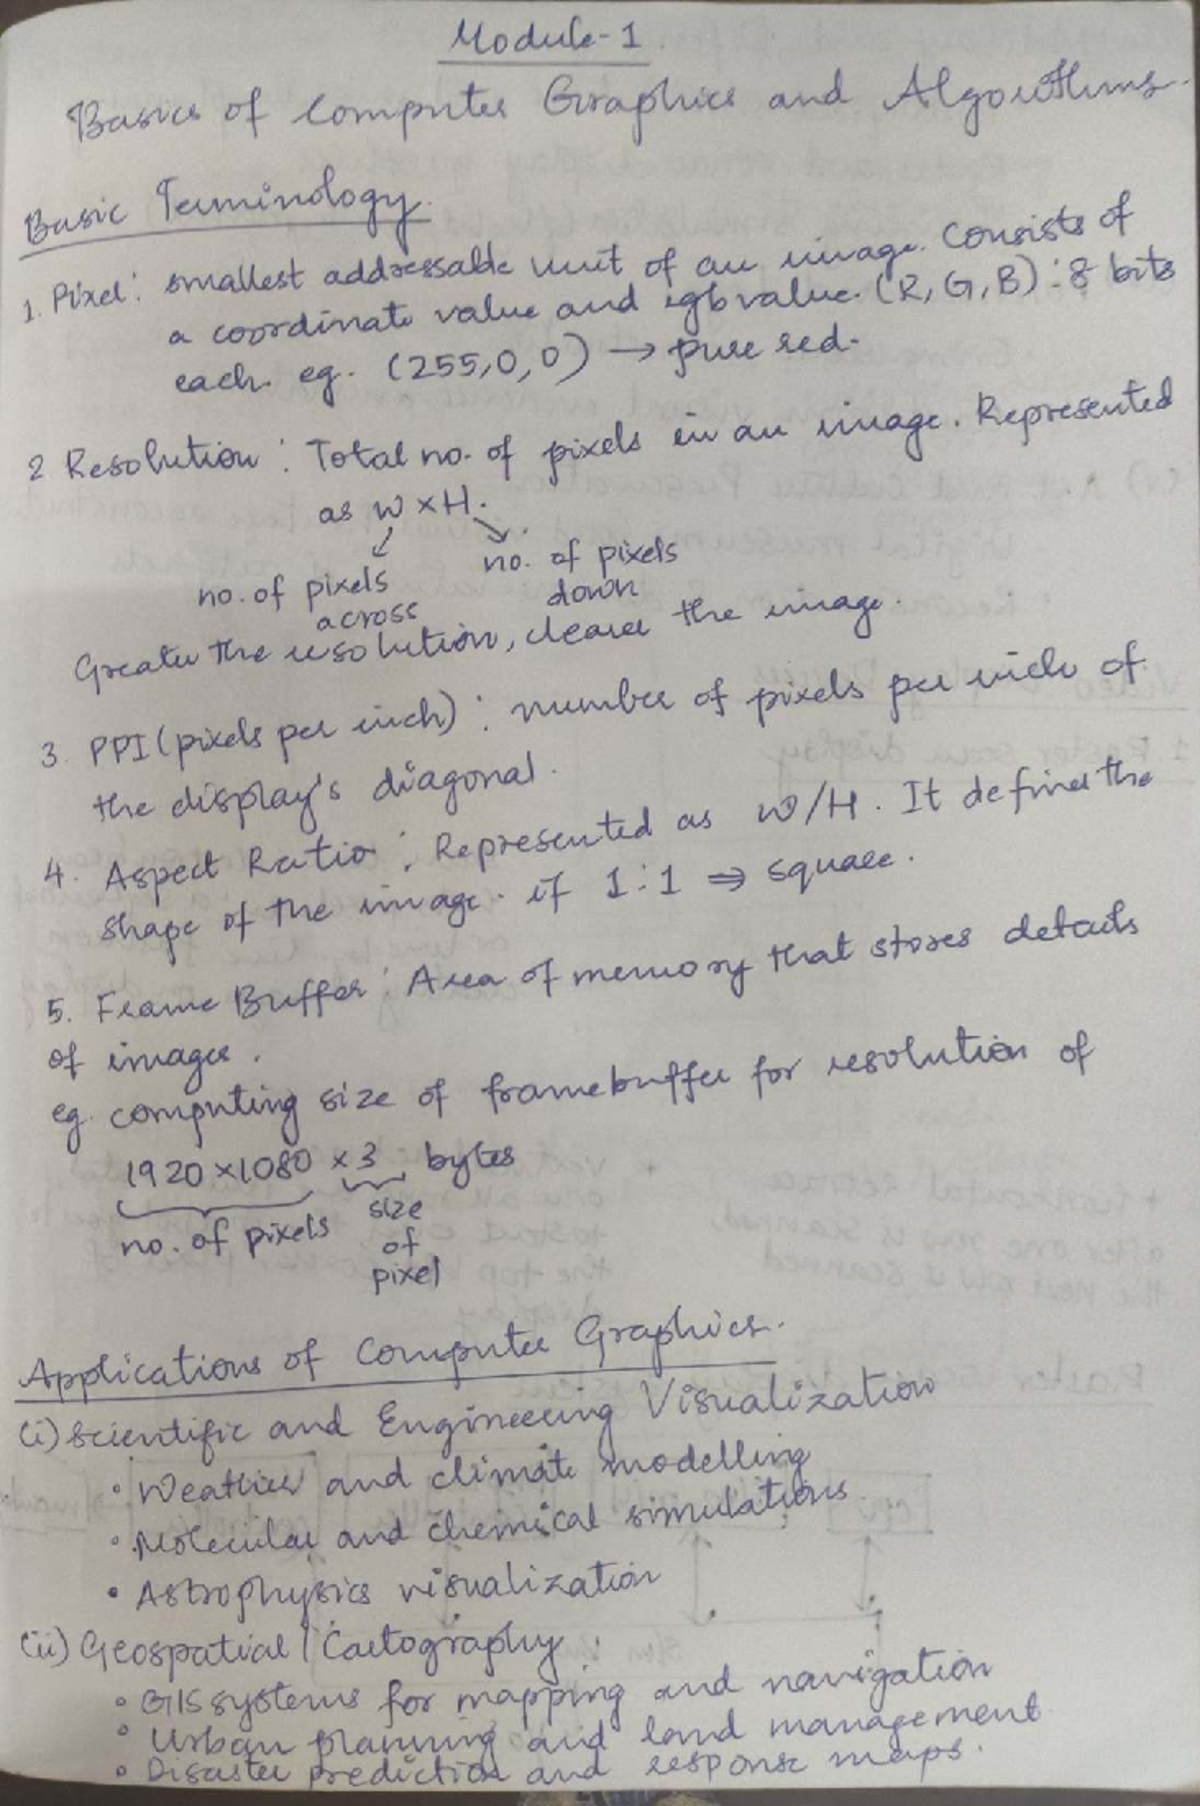 Module-1
Basics of Computer Graphics and Algorithms.
Basic Terminology.
1. Pixel: smallest addressable unit of an image. Consists of
a coordinate value and rgb value. (R, G, B) : 8 bits
each. eg. (255,0,0) → pure red.
2 Resolution: Total no. of pixels in an image. Represented
as W × H.
no. of pixels across
no. of pixels down
Greater the resolution, clearer the image.
3. PPI (pixels per inch): number of pixels per inch of
the display's diagonal.
4. Aspect Ratio: Represented as W/H. It defines the
shape of the image. if 1:1 ⇒ square.
5. Frame Buffer: Area of memory that stores details
of images.
eg. computing size of framebuffer for resolution of
1920 × 1080 × 3 bytes
no. of pixels
size of pixel
Applications of Computer Graphics.
(i) Scientific and Engineering Visualization
• Weather and climate modelling
• Molecular and chemical simulations
• Astrophysics visualization
(ii) Geospatial / Cartography.
• GIS systems for mapping and navigation
• Urban planning and land management
• Disaster prediction and response maps.